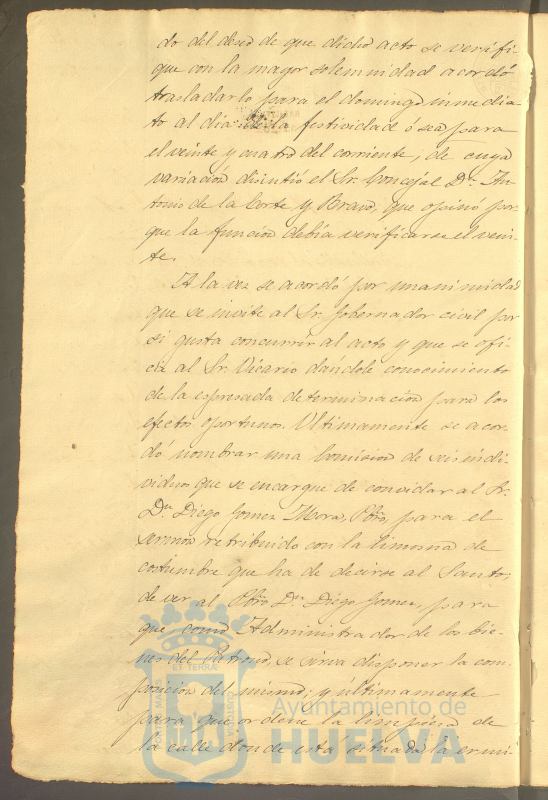 do del deseo de que dicho acto se verifi-
que con la mayor solemnidad acordó
trasladarlo para el domingo inmedia-
to al dia de la festividad ó sea para
el veinte y cuatro del corriente, de cuya
variacion disintió el Sr. Concejal Dn. An-
tonio de la Corte y Bravo, que opinó por-
que la funcion debía verificarse el vein-
te.
A la vez se acordó por unanimidad
que se invite al Sr. Gobernador civil por
si gusta concurrir al acto y que se ofi-
cie al Sr. Vicario dándole conocimiento
de la espresada determinacion para los
efectos oportunos. Ultimamente se acor-
dó nombrar una Comision de seis indi-
viduos que se encargue de convidar al Sr.
Dn. Diego Gomez Mora, Pbro, para el
sermon retribuido con la limosna de
costumbre que ha de decirse al Santo;
de ver al Pbro Dn. Diego Gomez, para
que como Administrador de los bie-
nes del Patrono, se sirva disponer la com-
posicion del mismo; y últimamente
para que ordene la limpieza de
la calle donde está situada la ermi-
Ayuntamiento de
HUELVA
PORTUS MARIS
ET TERRÆ
CUSTODIA